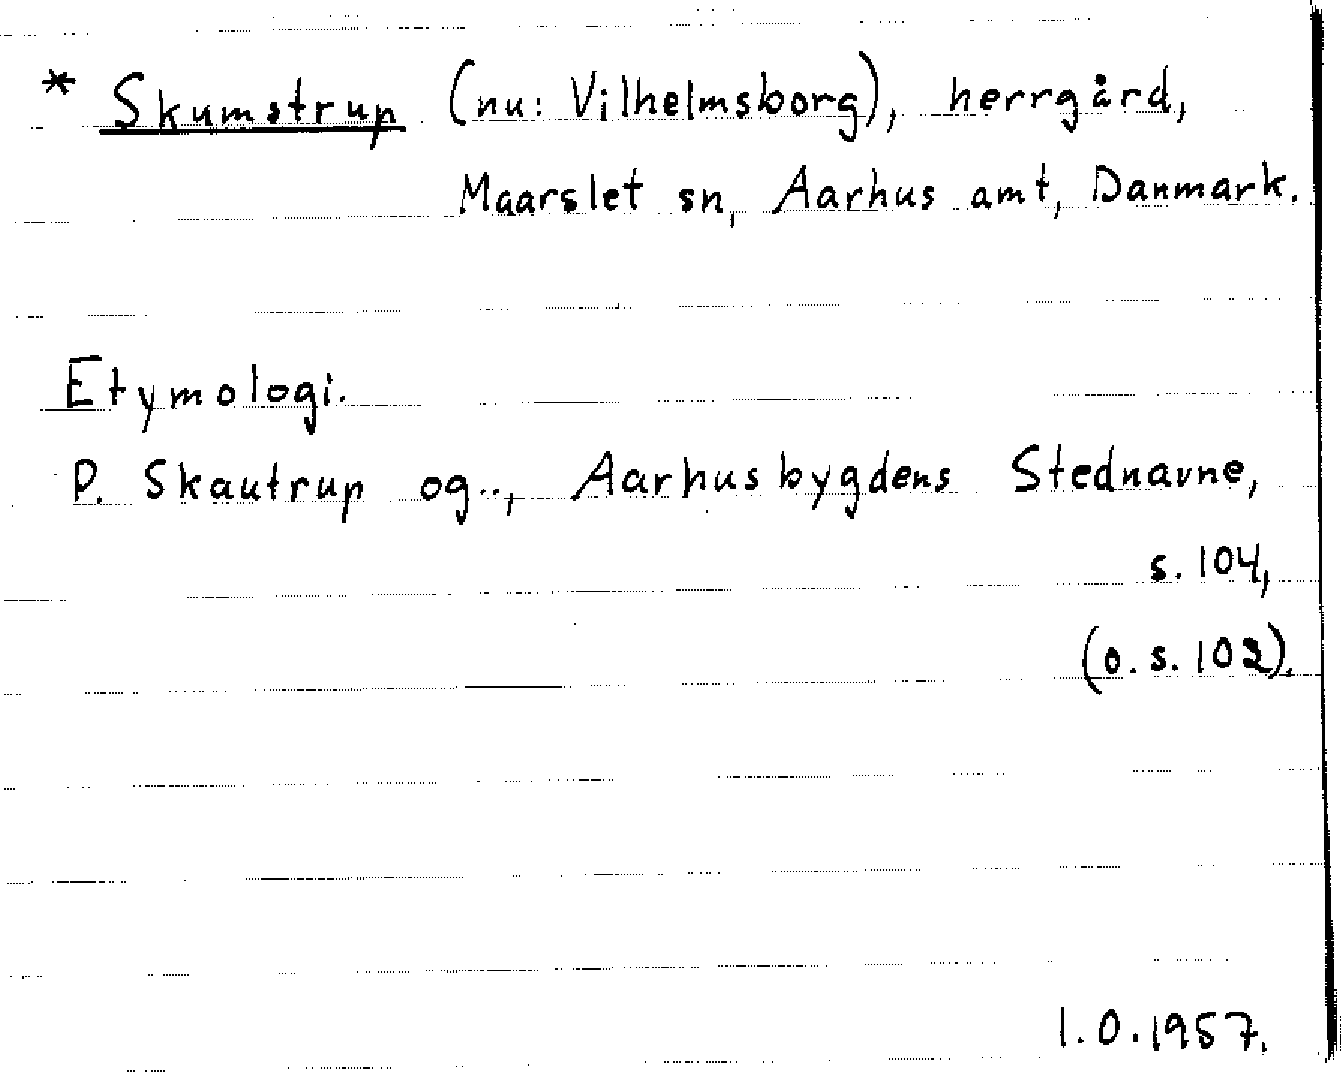 * Skumstrup (nu: Vilhelmsborg), herrgård,
Maarslet sn, Aarhus amt, Danmark.
Etymologi.
P. Skautrup og.., Aarhusbygdens Stednavne,
s. 104,
(o. s. 102).
I.O.1957.